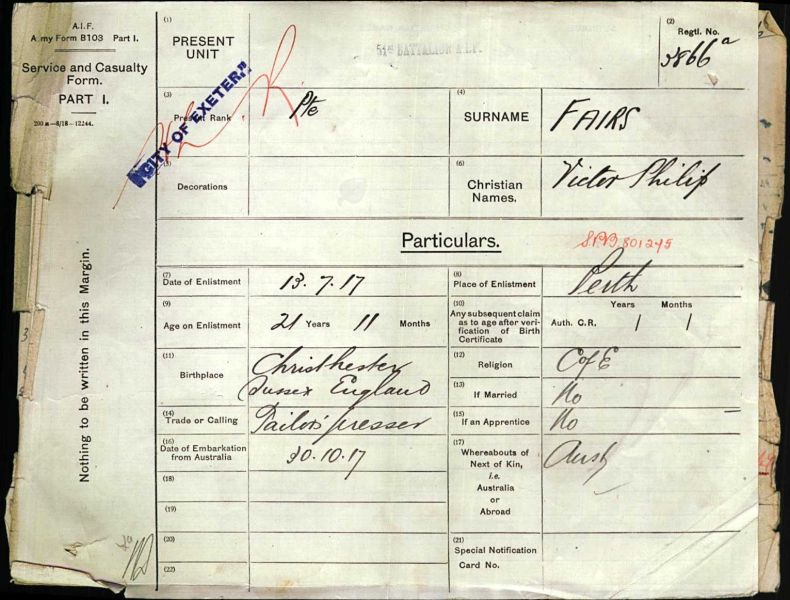 A.I.F.
Army Form B103 Part I.
Service and Casualty
Form.
PART I.
200 M—8/18—12244.
Nothing to be written in this Margin.
(1)
PRESENT
UNIT
51st BATTALION A.I.F.
(2)
Regtl. No.
3866a
(3)
Present Rank
Pte
"CITY OF EXETER"
(4)
SURNAME
FAIRS
(5)
Decorations
(6)
Christian
Names.
Victor Philip
Particulars.
801245
(7)
Date of Enlistment
13.7.17
(8)
Place of Enlistment
Perth
(9)
Age on Enlistment
21 Years 11 Months
(10)
Any subsequent claim
as to age after veri-
fication of Birth
Certificate
Auth. C.R. Years / Months /
(11)
Birthplace
Christhester
Sussex England
(12)
Religion
CofE
(13)
If Married
No
(14)
Trade or Calling
Tailor's presser
(15)
If an Apprentice
No
(16)
Date of Embarkation
from Australia
30.10.17
(17)
Whereabouts of
Next of Kin,
i.e.
Australia
or
Abroad
Aust
(18)
(19)
(20)
(21)
Special Notification
Card No.
(22)